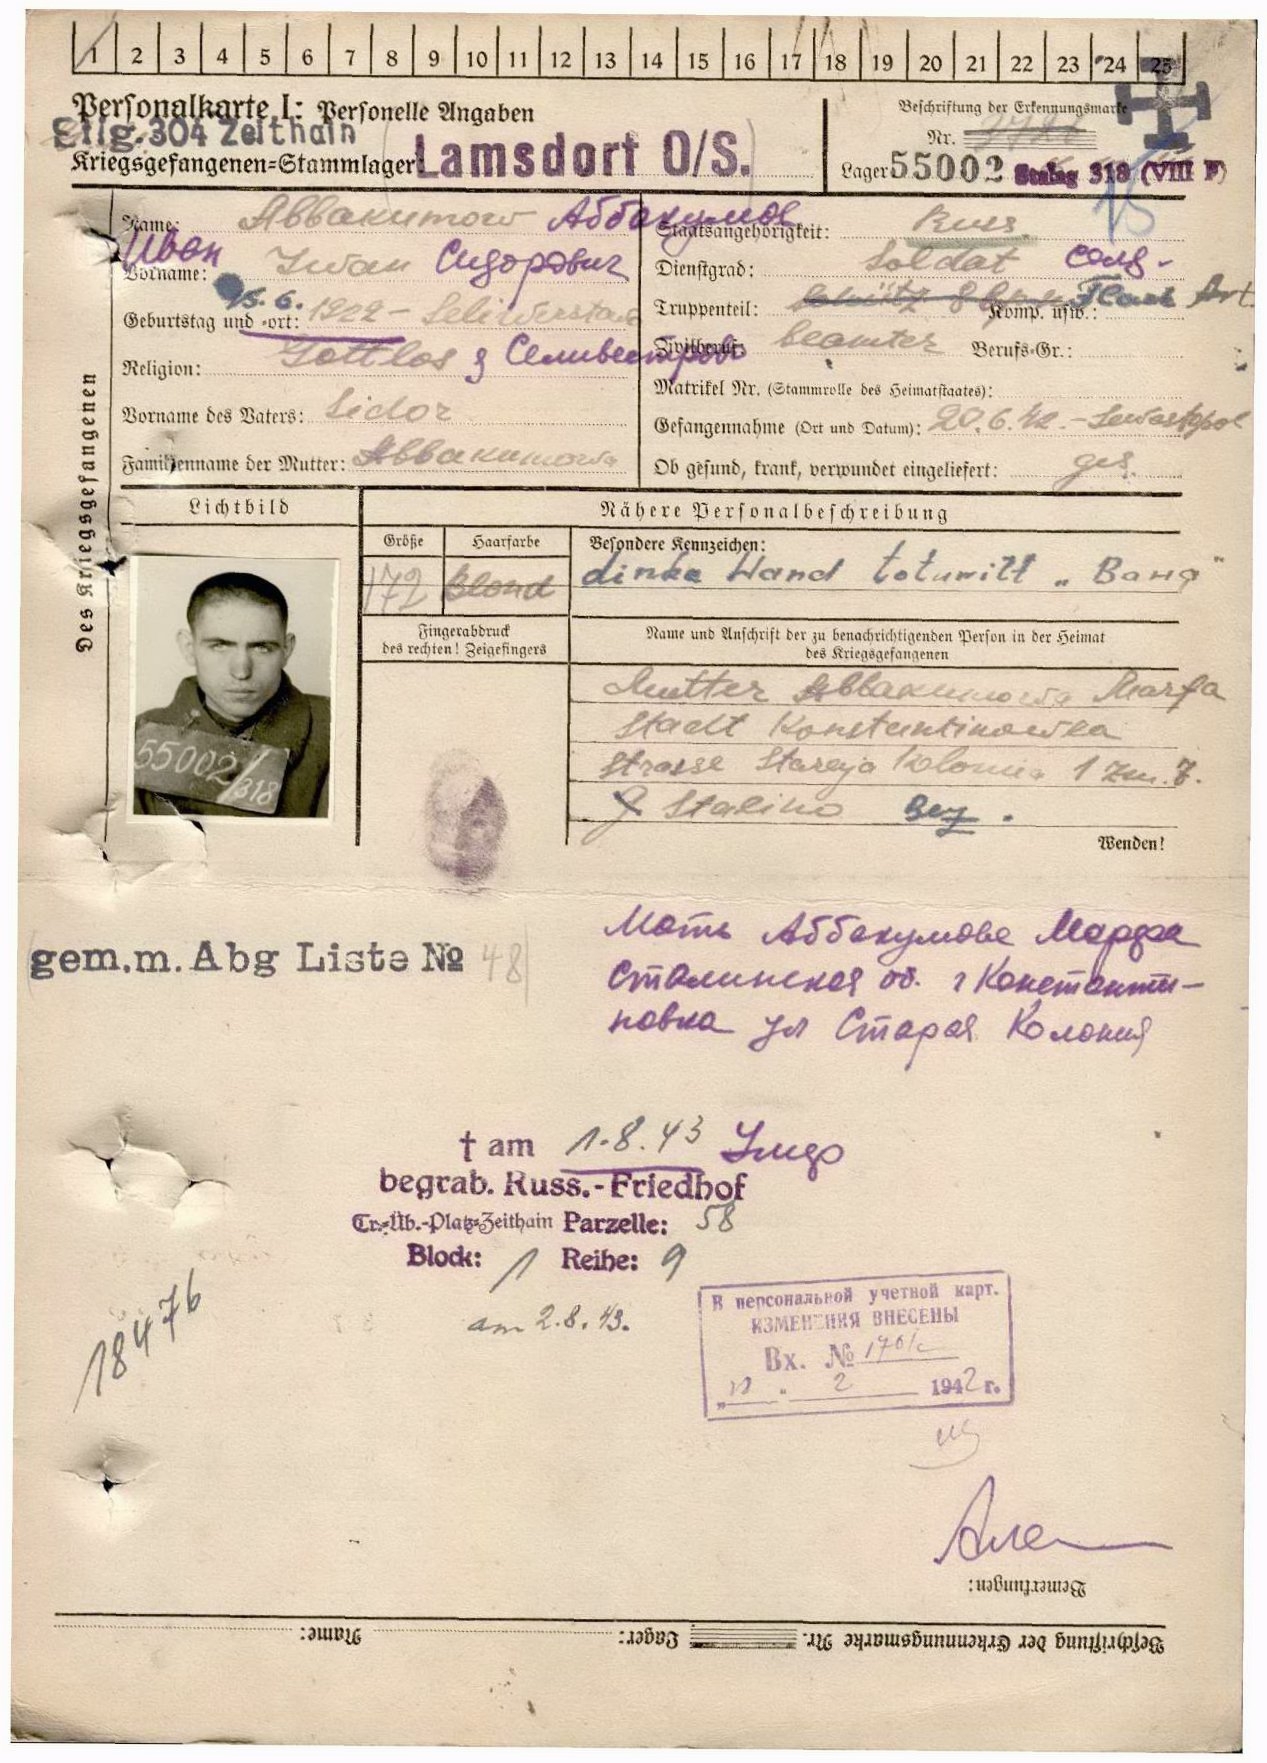 1 2 3 4 5 6 7 8 9 10 11 12 13 14 15 16 17 18 19 20 21 22 23 24 25
Personalkarte I: Personelle Angaben
Beschriftung der Erkennungsmarke
Stlg. 304 Zeithain
Nr.
Kriegsgefangenen=Stammlager: Lamsdorf O/S.
Lager 55002 Stalag 318 (VIII F)
15
Des Kriegsgefangenen
Name: Abbakumow Аббакумов
Иван
Vorname: Iwan Сидорович
Geburtstag und =ort: 15.6. 1922 -
Religion: Gottlos д Селивестрово
Vorname des Vaters: Sidor
Familienname der Mutter: Abbakumowa
Staatsangehörigkeit: Russ.
Dienstgrad: Soldat солд-
Truppenteil: Komp. usw.: Flak Art
Zivilberuf: beamter Berufs=Gr.:
Matrikel Nr. (Stammrolle des Heimatstaates):
Gefangennahme (Ort und Datum): 20.6.42. - Sewastopol
Ob gesund, krank, verwundet eingeliefert: ges.
Lichtbild
Nähere Personalbeschreibung
Größe Haarfarbe Besondere Kennzeichen:
172 Blond Hand "Ваня"
Fingerabdruck
des rechten! Zeigefingers
Name und Anschrift der zu benachrichtigenden Person in der Heimat
des Kriegsgefangenen
55002/318
Mutter Abbakumowa Marfa
Stadt Konstantinowka
Strasse Staraja Kolonia 1
Stalino
Wenden!
gem. m. Abg Liste № 48
Мать Аббакумова Марфа
Сталинская об. г Константи-
новка ул Старая Колония
† am 1.8.43
begrab. Russ.-Friedhof
Tr.=Üb.-Platz=Zeithain Parzelle: 58
Block: 1 Reihe: 9
am 2.8.43.
18476
В персональной учетной карт.
ИЗМЕНЕНИЯ ВНЕСЕНЫ
Вх. №
2 1942 г.
Bemerkungen:
Beschriftung der Erkennungsmarke Nr. Lager: Name: